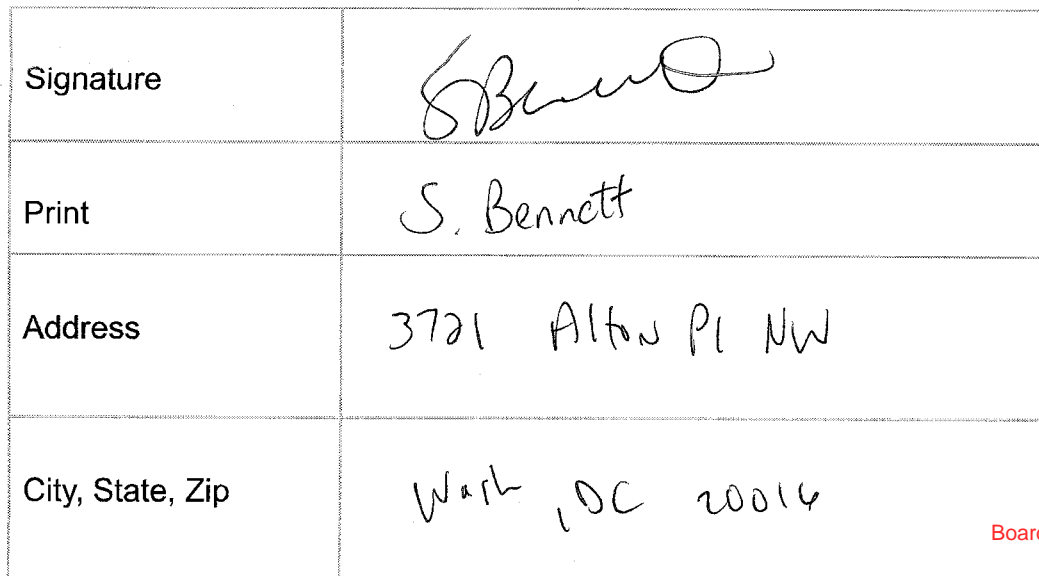 Signature SBennett
Print S. Bennett
Address 3721 Alton Pl NW
City, State, Zip Wash, DC 20016
Board